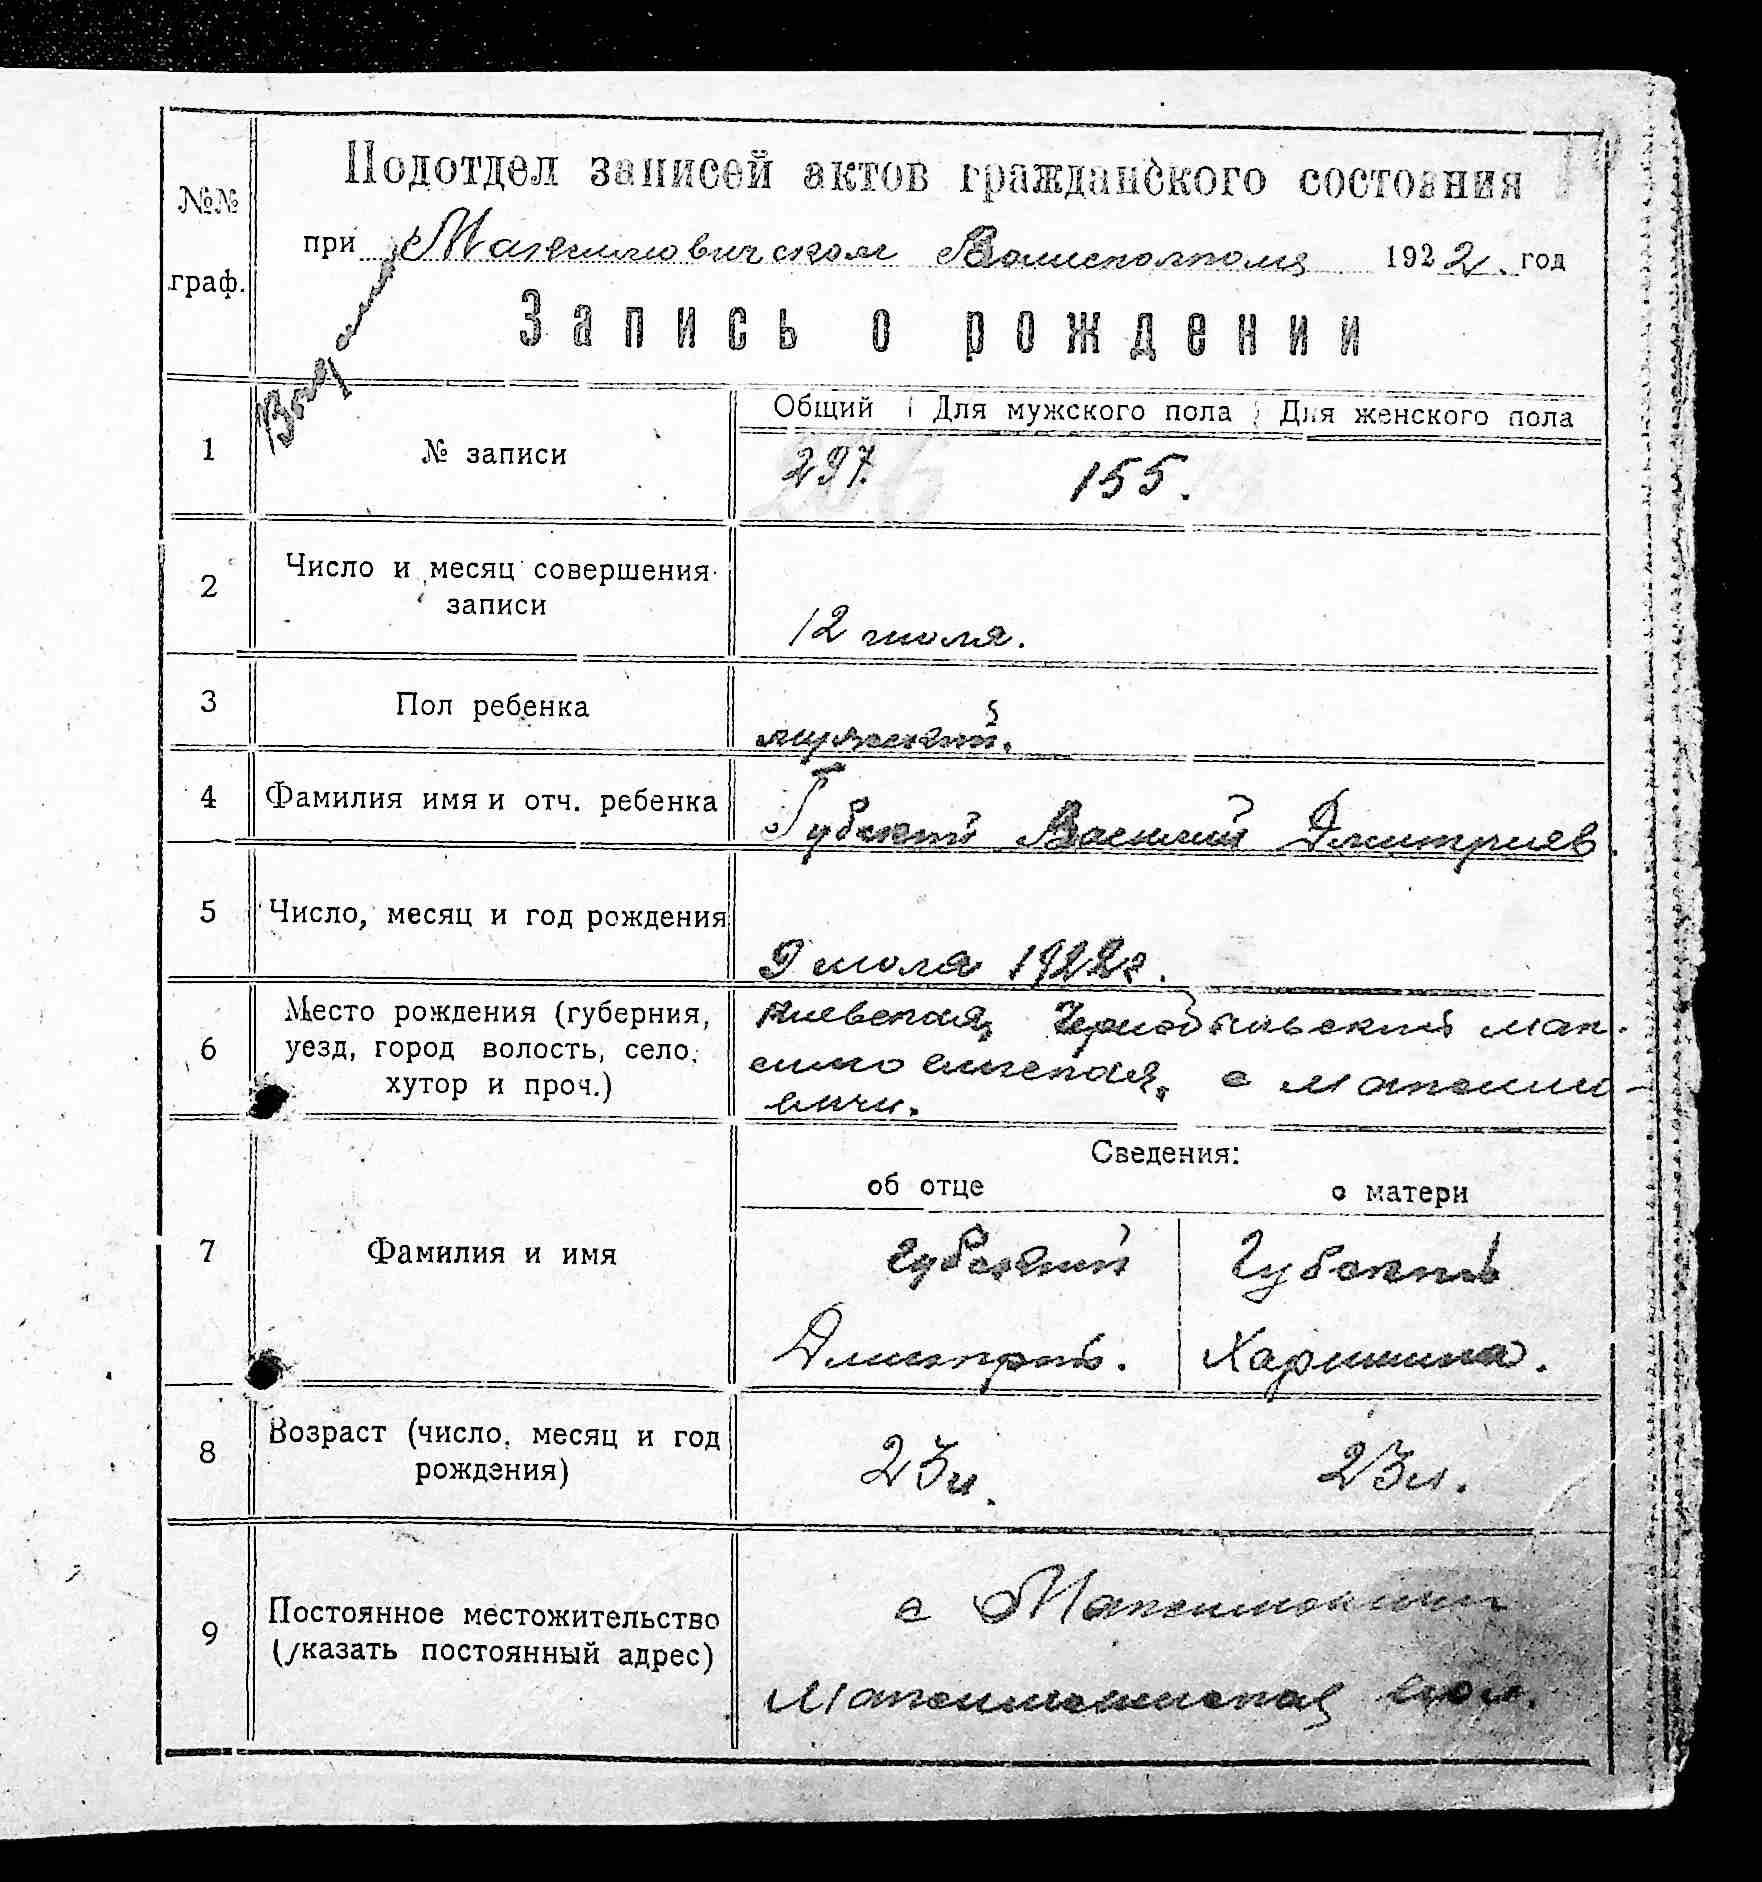 Подотдел записей актов гражданского состояния
№№
граф.
при Максимовичском Волисполкоме 1922 год
Запись о рождении
Общий Для мужского пола Для женского пола
1 № записи 297. 155.
2 Число и месяц совершения
записи
12 июля.
3 Пол ребенка мужский.
4 Фамилия имя и отч. ребенка Губский Василий Дмитриев
5 Число, месяц и год рождения
9 июля 1922г.
6 Место рождения (губерния,
уезд, город волость, село,
хутор и проч.)
Киевская, Чернобыльский Мак-
симовичская, с Максимо-
вичи.
Сведения:
об отце о матери
7 Фамилия и имя
Губский Губский
Дмитрий. Харитина.
8 Возраст (число, месяц и год
рождения)
23л. 23л.
9 Постоянное местожительство
(указать постоянный адрес)
с Максимовичи